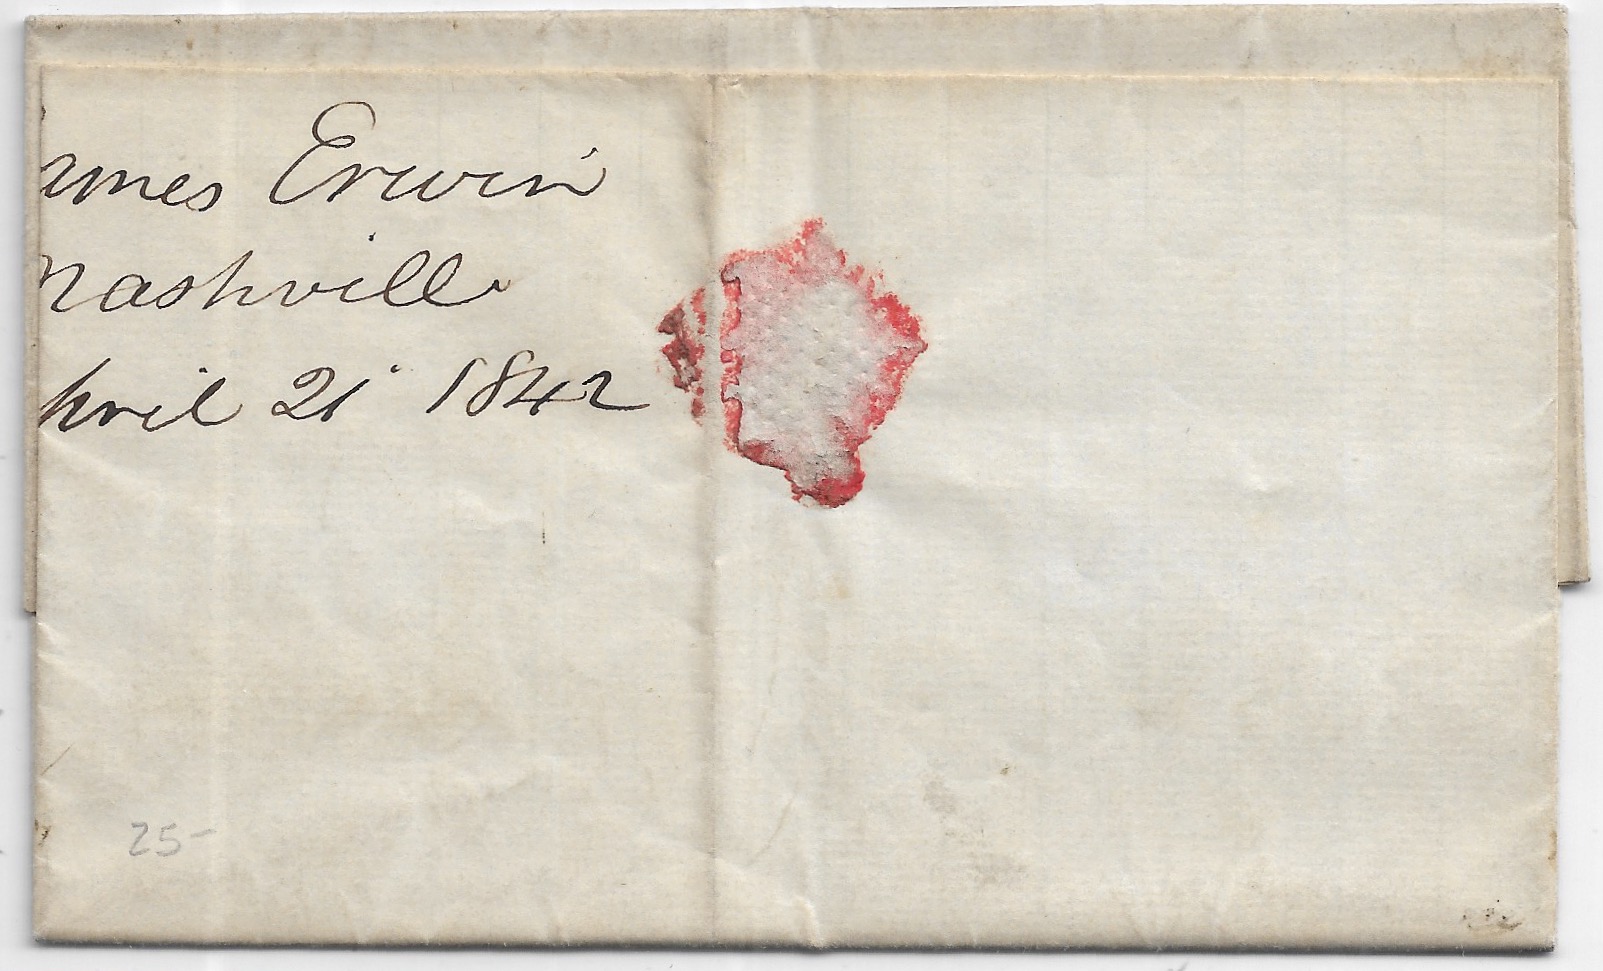 ames Erwin
Nashville
pril 21 1842
25-